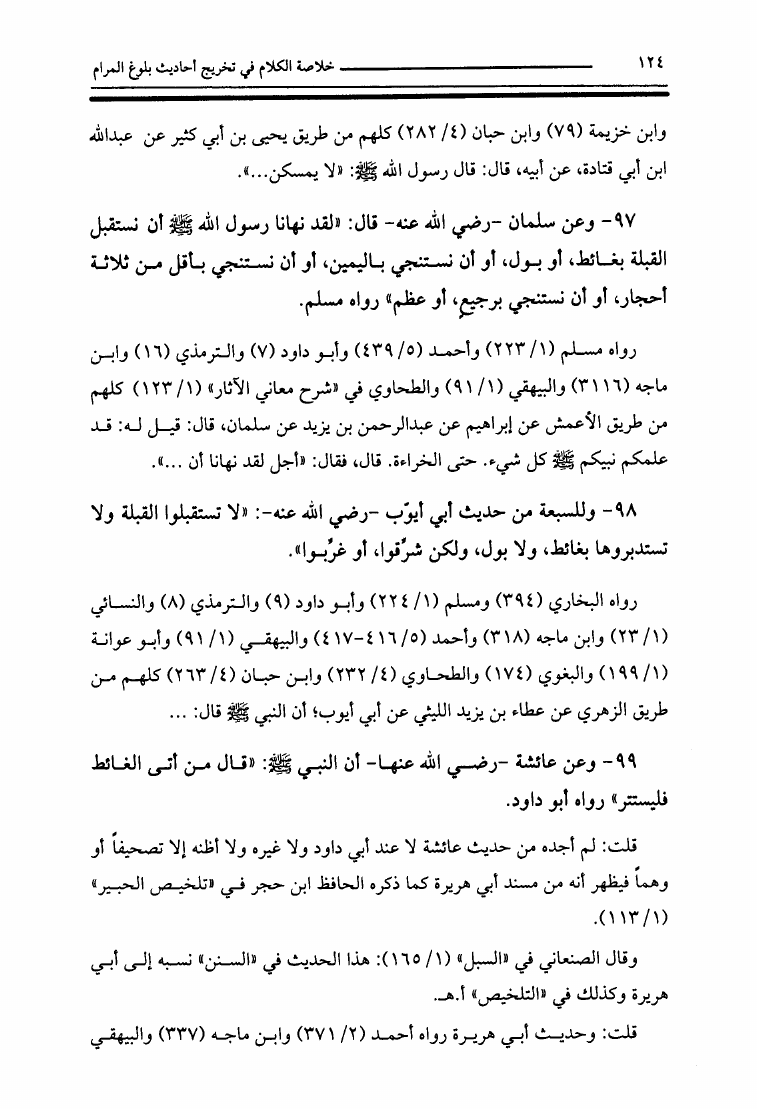 ١٢٤ ــــــــــــــــــــــــــــــــ خلاصة الكلام في تخريج أحاديث بلوغ المرام
وابن خزيمة (٧٩) وابن حبان (٤/ ٢٨٢) كلهم من طريق يحيى بن أبي كثير عن عبدالله
ابن أبي قتادة، عن أبيه، قال: قال رسول الله ﷺ: «لا يمسكن...».
٩٧- وعن سلمان -رضي الله عنه- قال: «لقد نهانا رسول الله ﷺ أن نستقبل
القبلة بغـائط، أو بـول، أو أن نستنجي بـاليمين، أو أن نستنجي بـأقل مـن ثلاثـة
أحجار، أو أن نستنجي برجيعٍ، أو عظم» رواه مسلم.
رواه مسـلم (١/ ٢٢٣) وأحمـد (٥/ ٤٣٩) وأبـو داود (٧) والـترمذي (١٦) وابـن
ماجه (٣١١٦) والبيهقي (١/ ٩١) والطحاوي في «شرح معاني الآثار» (١/ ١٢٣) كلهم
من طريق الأعمش عن إبراهيم عن عبدالرحمن بن يزيد عن سلمان، قال: قيـل لـه: قـد
علمكم نبيكم ﷺ كل شيء. حتى الخراءة. قال، فقال: «أجل لقد نهانا أن ...».
٩٨- وللسبعة من حديث أبي أيوّب -رضي الله عنه-: «لا تستقبلوا القبلة ولا
تستدبروها بغائط، ولا بول، ولكن شرِّقوا، أو غرِّبـوا».
رواه البخاري (٣٩٤) ومسلم (١/ ٢٢٤) وأبـو داود (٩) والـترمذي (٨) والنسـائي
(١/ ٢٣) وابن ماجه (٣١٨) وأحمد (٥/ ٤١٦-٤١٧) والبيهقـي (١/ ٩١) وأبـو عوانـة
(١/ ١٩٩) والبغوي (١٧٤) والطحـاوي (٤/ ٢٣٢) وابـن حبـان (٤/ ٢٦٣) كلهـم مـن
طريق الزهري عن عطاء بن يزيد الليثي عن أبي أيوب؛ أن النبي ﷺ قال: ...
٩٩- وعن عائشة -رضـي الله عنهـا- أن النبـي ﷺ: «قـال مـن أتـى الغـائط
فليستتر» رواه أبو داود.
قلت: لم أجده من حديث عائشة لا عند أبي داود ولا غيره ولا أظنه إلا تصحيفاً أو
وهماً فيظهر أنه من مسند أبي هريرة كما ذكره الحافظ ابن حجر فـي «تلخيـص الحبـير»
(١/ ١١٣).
وقال الصنعاني في «السبل» (١/ ١٦٥): هذا الحديث في «السـنن» نسبه إلـى أبـي
هريرة وكذلك في «التلخيص» أ.هـ.
قلت: وحديـث أبـي هريـرة رواه أحمـد (٢/ ٣٧١) وابـن ماجـه (٣٣٧) والبيهقـي